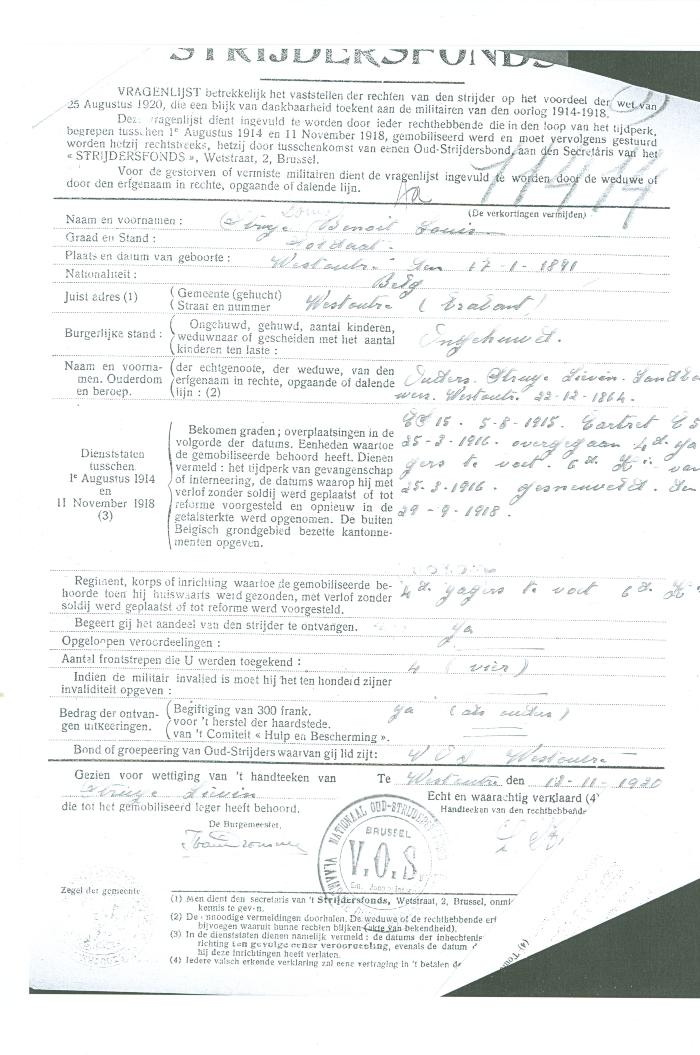 STRIJDERSFONDS
VRAGENLIJST betrekkelijk het vaststellen der rechten van den strijder op het voordeel der wet van
25 Augustus 1920, die een blijk van dankbaarheid toekent aan de militairen van den oorlog 1914-1918.
Deze vragenlijst dient ingevuld te worden door ieder rechthebbende die in den loop van het tijdperk,
begrepen tusschen 1e Augustus 1914 en 11 November 1918, gemobiliseerd werd en moet vervolgens gestuurd
worden hetzij rechtstreeks, hetzij door tusschenkomst van eenen Oud-Strijdersbond, aan den Secretaris van het
« STRIJDERSFONDS », Wetstraat, 2, Brussel.
Voor de gestorven of vermiste militairen dient de vragenlijst ingevuld te worden door de weduwe of
door den erfgenaam in rechte, opgaande of dalende lijn.
(De verkortingen vermijden)
Naam en voornamen : Struye Benoit Louis
Graad en Stand : Soldaat.
Plaats en datum van geboorte : Westoutre den 17-1-1891
Nationaliteit : Belg
Juist adres (1) Gemeente (gehucht) Westoutre (Brabant)
Straat en nummer
Burgerlijke stand : Ongehuwd, gehuwd, aantal kinderen,
weduwnaar of gescheiden met het aantal Ongehuwd.
kinderen ten laste :
Naam en voorna- der echtgenoote, der weduwe, van den Ouders. Struye Lievin.
men. Ouderdom erfgenaam in rechte, opgaande of dalende
en beroep. lijn : (2) Westoutre 22-12-1864.
Dienststaten
tusschen
1e Augustus 1914
en
11 November 1918
(3)
Bekomen graden ; overplaatsingen in de
volgorde der datums. Eenheden waartoe
de gemobiliseerde behoord heeft. Dienen
vermeld : het tijdperk van gevangenschap
of interneering, de datums waarop hij met
verlof zonder soldij werd geplaatst of tot
reforme voorgesteld en opnieuw in de
getalsterkte werd opgenomen. De buiten
Belgisch grondgebied bezette kantonne-
menten opgeven.
15. 5-8-1915.
25-3-1916. overgegaan 4de Ja
gers te voet. 6de van
25-3-1916. gesneuveld. den
29-9-1918.
Regiment, korps of inrichting waartoe de gemobiliseerde be-
hoorde toen hij huiswaarts werd gezonden, met verlof zonder 4de Jagers te voet 6de
soldij werd geplaatst of tot reforme werd voorgesteld.
Begeert gij het aandeel van den strijder te ontvangen. ja
Opgeloopen veroordeelingen :
Aantal frontstrepen die U werden toegekend : 4 (vier)
Indien de militair invalied is moet hij het ten honderd zijner
invaliditeit opgeven :
Bedrag der ontvan-
gen uitkeeringen.
Begiftiging van 300 frank. ja (als ouders)
voor 't herstel der haardstede.
van 't Comiteit « Hulp en Bescherming ».
Bond of groepeering van Oud-Strijders waarvan gij lid zijt: V O S Westoutre
Gezien voor wettiging van 't handteeken van Te Westoutre den 12-11-1920
Struye Lievin Echt en waarachtig verklaard (4)
die tot het gemobiliseerd leger heeft behoord. Handteeken van den rechthebbende
De Burgemeester,
NATIONAAL OUD-STRIJDERS
BRUSSEL
V.O.S.
Zegel der gemeente
(1) Men dient den secretaris van 't Strijdersfonds, Wetstraat, 2, Brussel, onmi
kennis te geven.
(2) De onnoodige vermeldingen doorhalen. De weduwe of de rechthebbende erf
bijvoegen waaruit hunne rechten blijken (akte van bekendheid).
(3) In de dienststaten dienen namelijk vermeld : de datums der inhechtenis
richting ten gevolge eener veroordeeling, evenals de datum
hij deze inrichtingen heeft verlaten.
(4) Iedere valsch erkende verklaring zal eene vertraging in 't betalen de